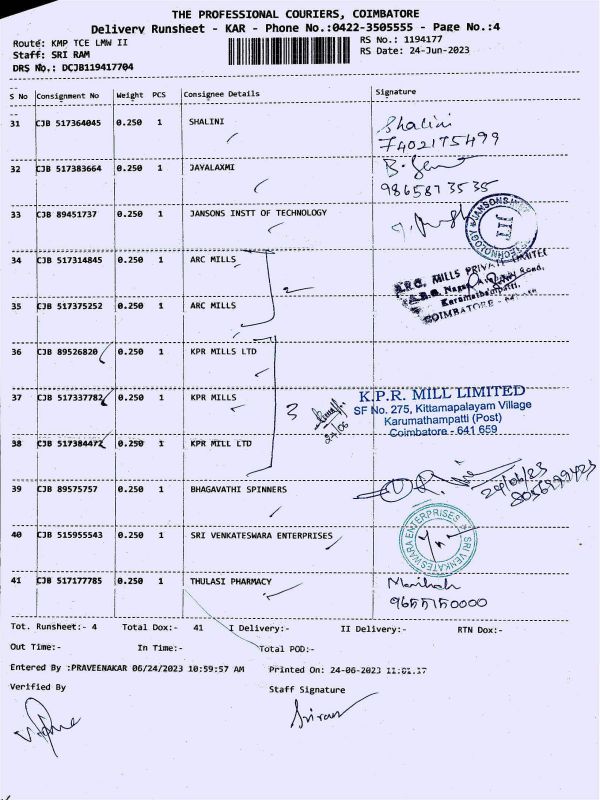 THE PROFESSIONAL COURIERS, COIMBATORE
Delivery Runsheet - KAR - Phone No.:0422-3505555 - Page No.:4
Route: KMP TCE LMW II
RS No.: 1194177
Staff: SRI RAM
RS Date: 24-Jun-2023
DRS No.: DCJB119417704
S No Consignment No Weight PCS Consignee Details Signature
31 CJB 517364045 0.250 1 SHALINI Shalini
7402175499
32 CJB 517383664 0.250 1 JAYALAXMI
9865873535
33 CJB 89451737 0.250 1 JANSONS INSTT OF TECHNOLOGY
JANSONS TECHNOLOGY JIT
34 CJB 517314845 0.250 1 ARC MILLS
2
A.R.C. MILLS PRIVATE LIMITED
Karumathampatti,
COIMBATORE
35 CJB 517375252 0.250 1 ARC MILLS
36 CJB 89526820 0.250 1 KPR MILLS LTD
37 CJB 517337782 0.250 1 KPR MILLS
3
24/06
K.P.R. MILL LIMITED
SF No. 275, Kittamapalayam Village
Karumathampatti (Post)
Coimbatore - 641 659
38 CJB 517384472 0.250 1 KPR MILL LTD
39 CJB 89575757 0.250 1 BHAGAVATHI SPINNERS
24/06/23
40 CJB 515955543 0.250 1 SRI VENKATESWARA ENTERPRISES
SRI VENKATESWARA ENTERPRISES
41 CJB 517177785 0.250 1 THULASI PHARMACY
9655150000
Tot. Runsheet:- 4 Total Dox:- 41 I Delivery:- II Delivery:- RTN Dox:-
Out Time:- In Time:- Total POD:-
Entered By :PRAVEENAKAR 06/24/2023 10:59:57 AM Printed On: 24-06-2023 11:01:17
Verified By Staff Signature
Sriram